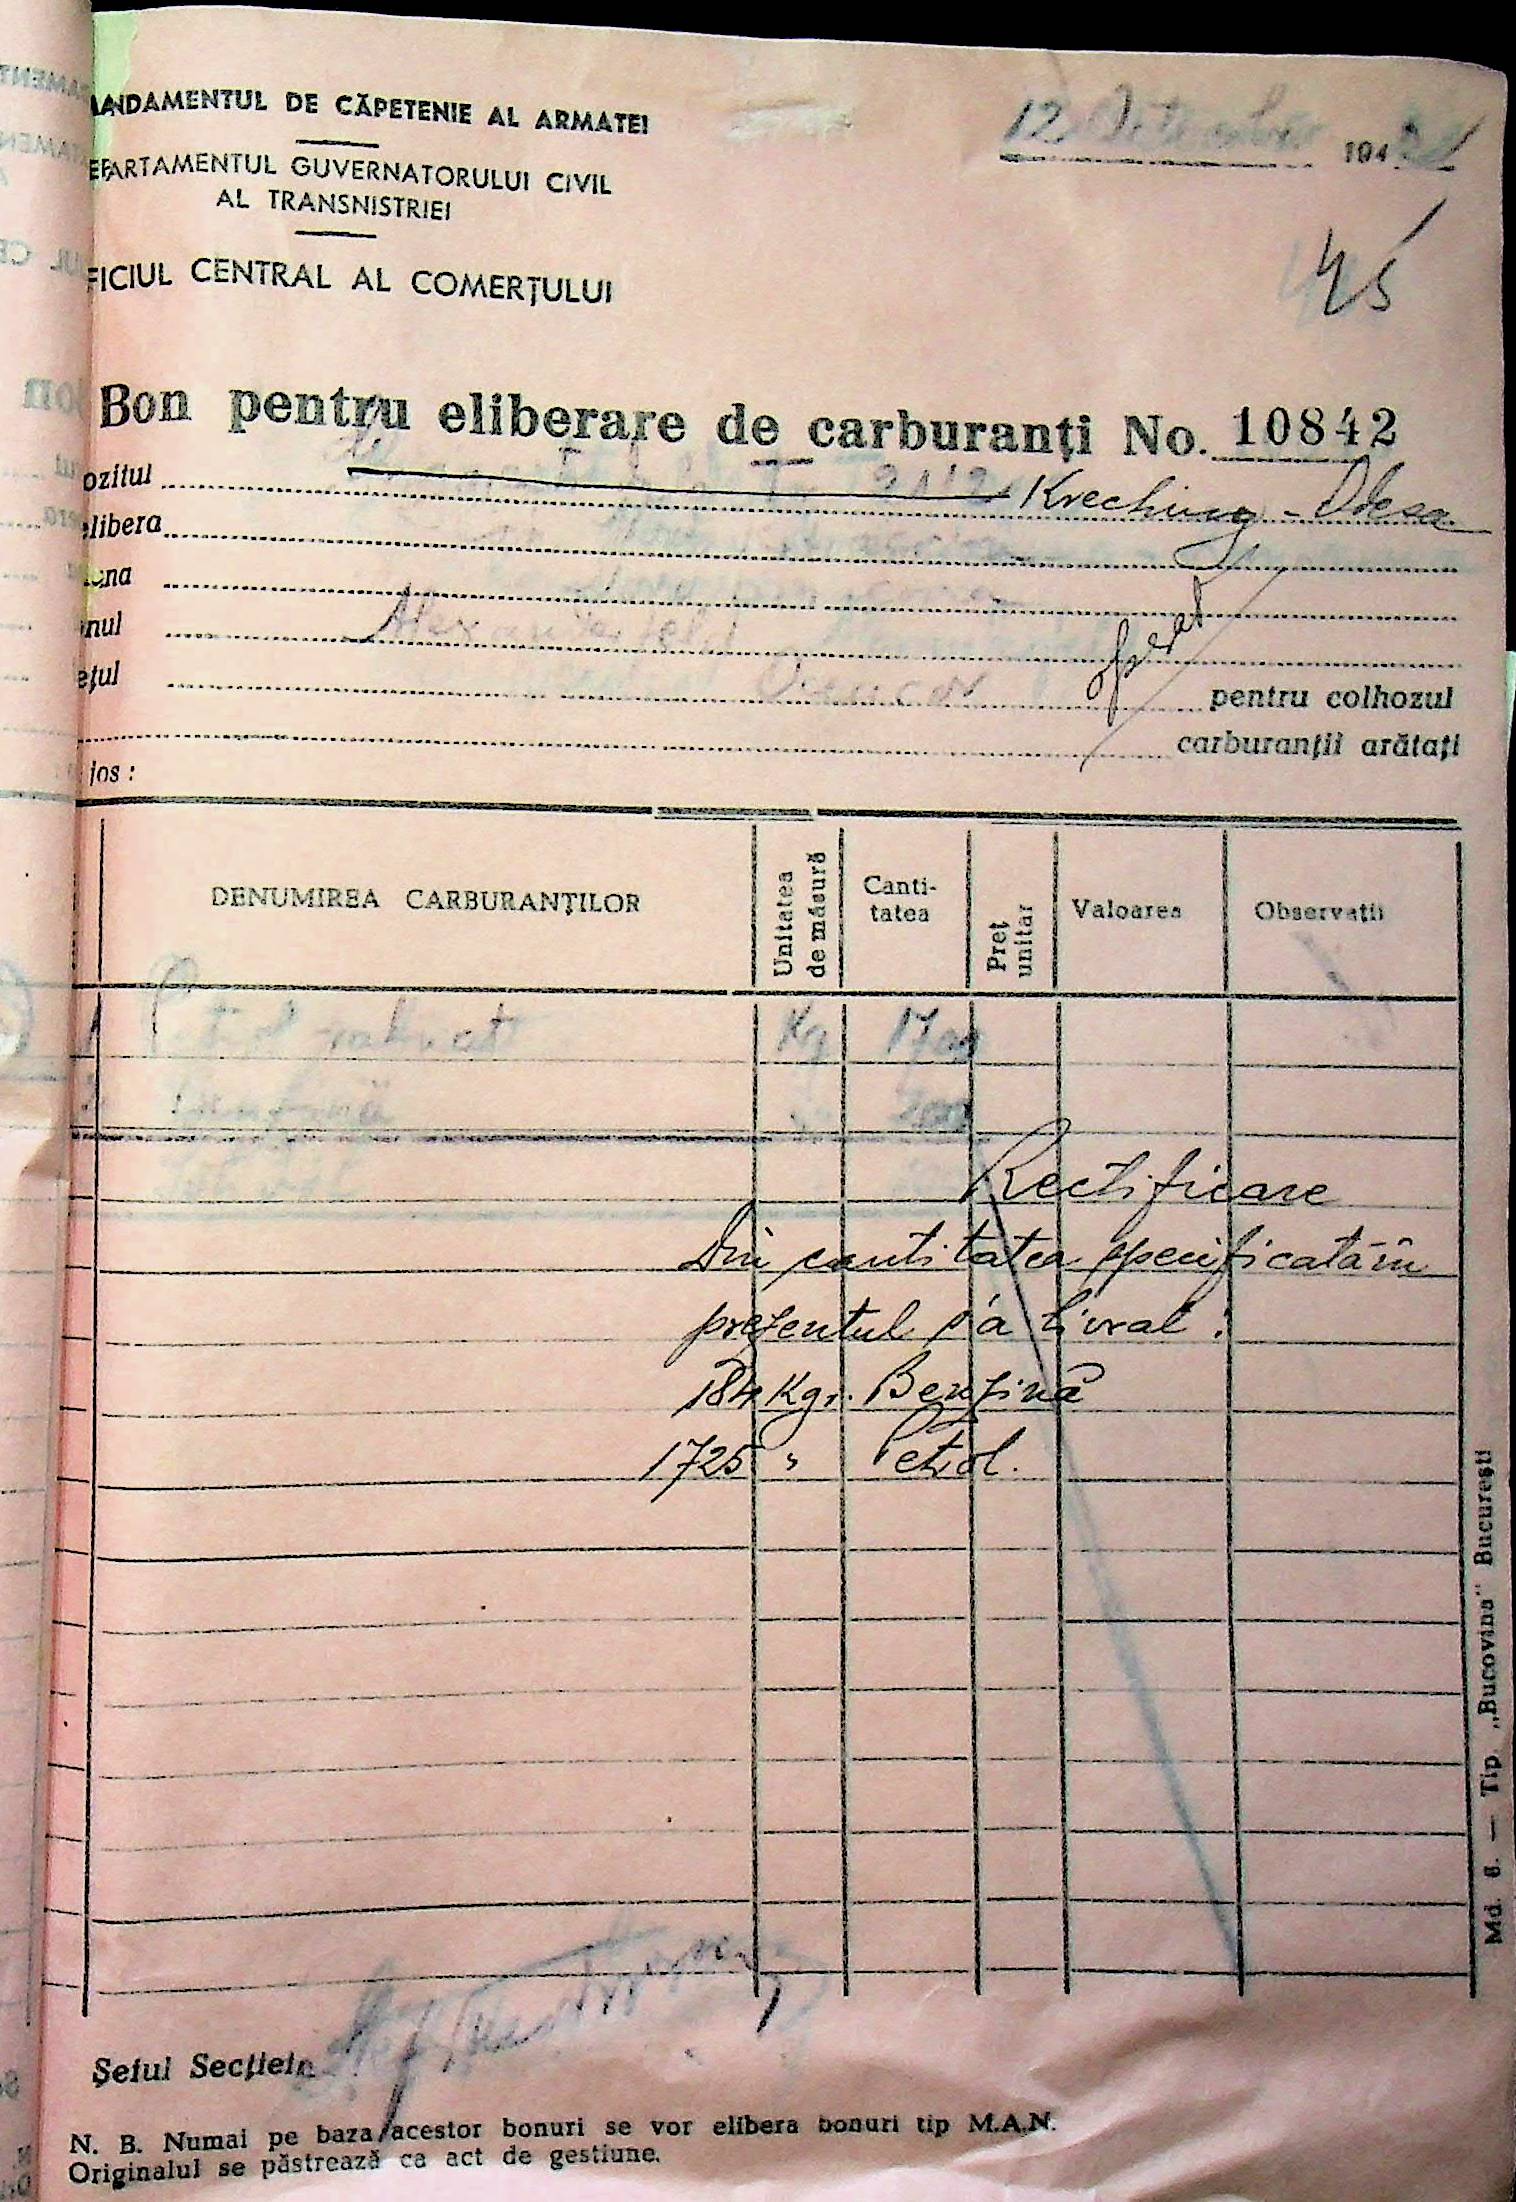 ANDAMENTUL DE CĂPETENIE AL ARMATEI
EPARTAMENTUL GUVERNATORULUI CIVIL
AL TRANSNISTRIEI
FICIUL CENTRAL AL COMERŢULUI
12 194
45
Bon pentru eliberare de carburanţi No. 10842
ozitul Kreching - Odesa
elibera
ana
nul Alexanderfeld
eţul operat pentru colhozul
carburanţii arătaţi
jos :
DENUMIREA CARBURANŢILOR Unitatea de măsură Canti-tatea Preţ unitar Valoarea Observaţii
1 Petrol Kg 1700
Rectificare
Din cantitatea specificată în
prezentul s'a livrat :
184 Kgr. Benzină
1725 " Petrol.
Şeful Secţiei
N. B. Numai pe baza acestor bonuri se vor elibera bonuri tip M.A.N.
Originalul se păstrează ca act de gestiune.
Md. 6. — Tip. „Bucovina" Bucureşti